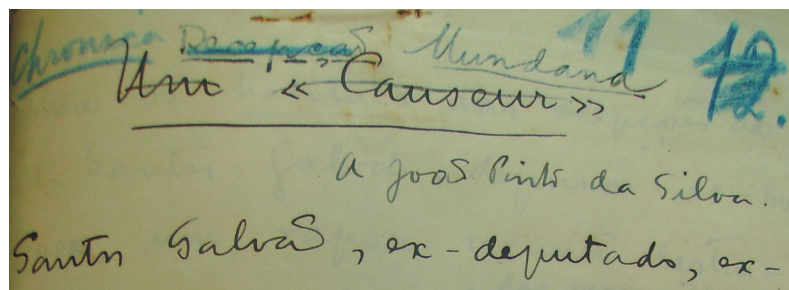 Chronica Recepção Mundana 11 12.
Um « Causeur »
A João Pinto da Silva.
Santos Galvão, ex-deputado, ex-